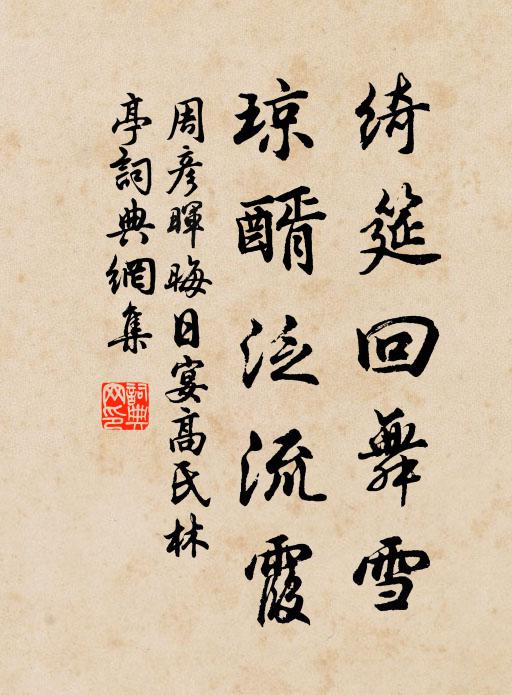 绮筵回舞雪
琼醑泛流霞
周彦暉晦日宴高氏林
亭詞典網集
詞典
网印